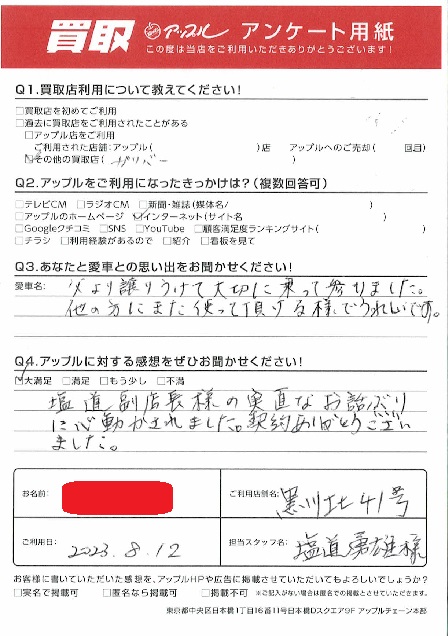 買取 アップル アンケート用紙
この度は当店をご利用いただきありがとうございます！
Q1.買取店利用について教えてください！
□買取店を初めてご利用
□過去に買取店をご利用されたことがある
□アップル店をご利用
ご利用された店舗:アップル( )店 アップルへのご売却( 回目)
☑その他の買取店( ガリバー )
Q2.アップルをご利用になったきっかけは？(複数回答可)
□テレビCM □ラジオCM □新聞・雑誌(媒体名/ )
□アップルのホームページ ☑インターネット(サイト名 )
□Googleクチコミ □SNS □YouTube □顧客満足度ランキングサイト( )
□チラシ □利用経験があるので □紹介 □看板を見て
Q3.あなたと愛車との思い出をお聞かせください！
愛車名: 父より譲りうけて大切に乗って参りました。
他の方にまた使って頂ける様でうれしいです。
Q4.アップルに対する感想をぜひお聞かせください！
☑大満足 □満足 □もう少し □不満
塩道副店長様の実直なお話ぶり
に心動かされました。契約ありがとうござい
ました。
お名前:
ご利用店舗名: 黒川北41号
ご利用日: 2023.8.12
担当スタッフ名: 塩道勇雄様
お客様に書いていただいた感想を、アップルHPや広告に掲載させていただいてもよろしいでしょうか？
□実名で掲載可 □匿名なら掲載可 □掲載不可 ※ご記入がない場合は匿名での掲載とさせていただきます。
東京都中央区日本橋1丁目16番11号日本橋Dスクエア9F アップルチェーン本部